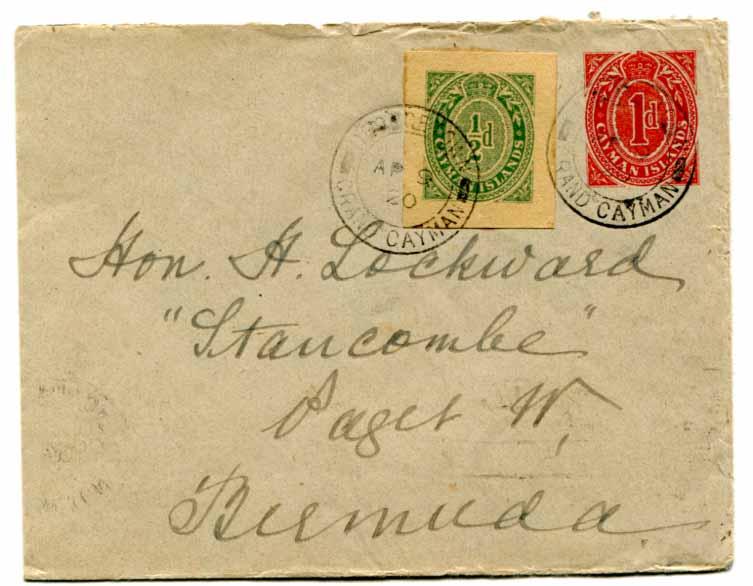 ½d
CAYMAN ISLANDS
1d
CAYMAN ISLANDS
AP 9
20
GRAND CAYMAN
GRAND CAYMAN
Hon. H. Lockward
"Stancombe"
Paget W,
Bermuda